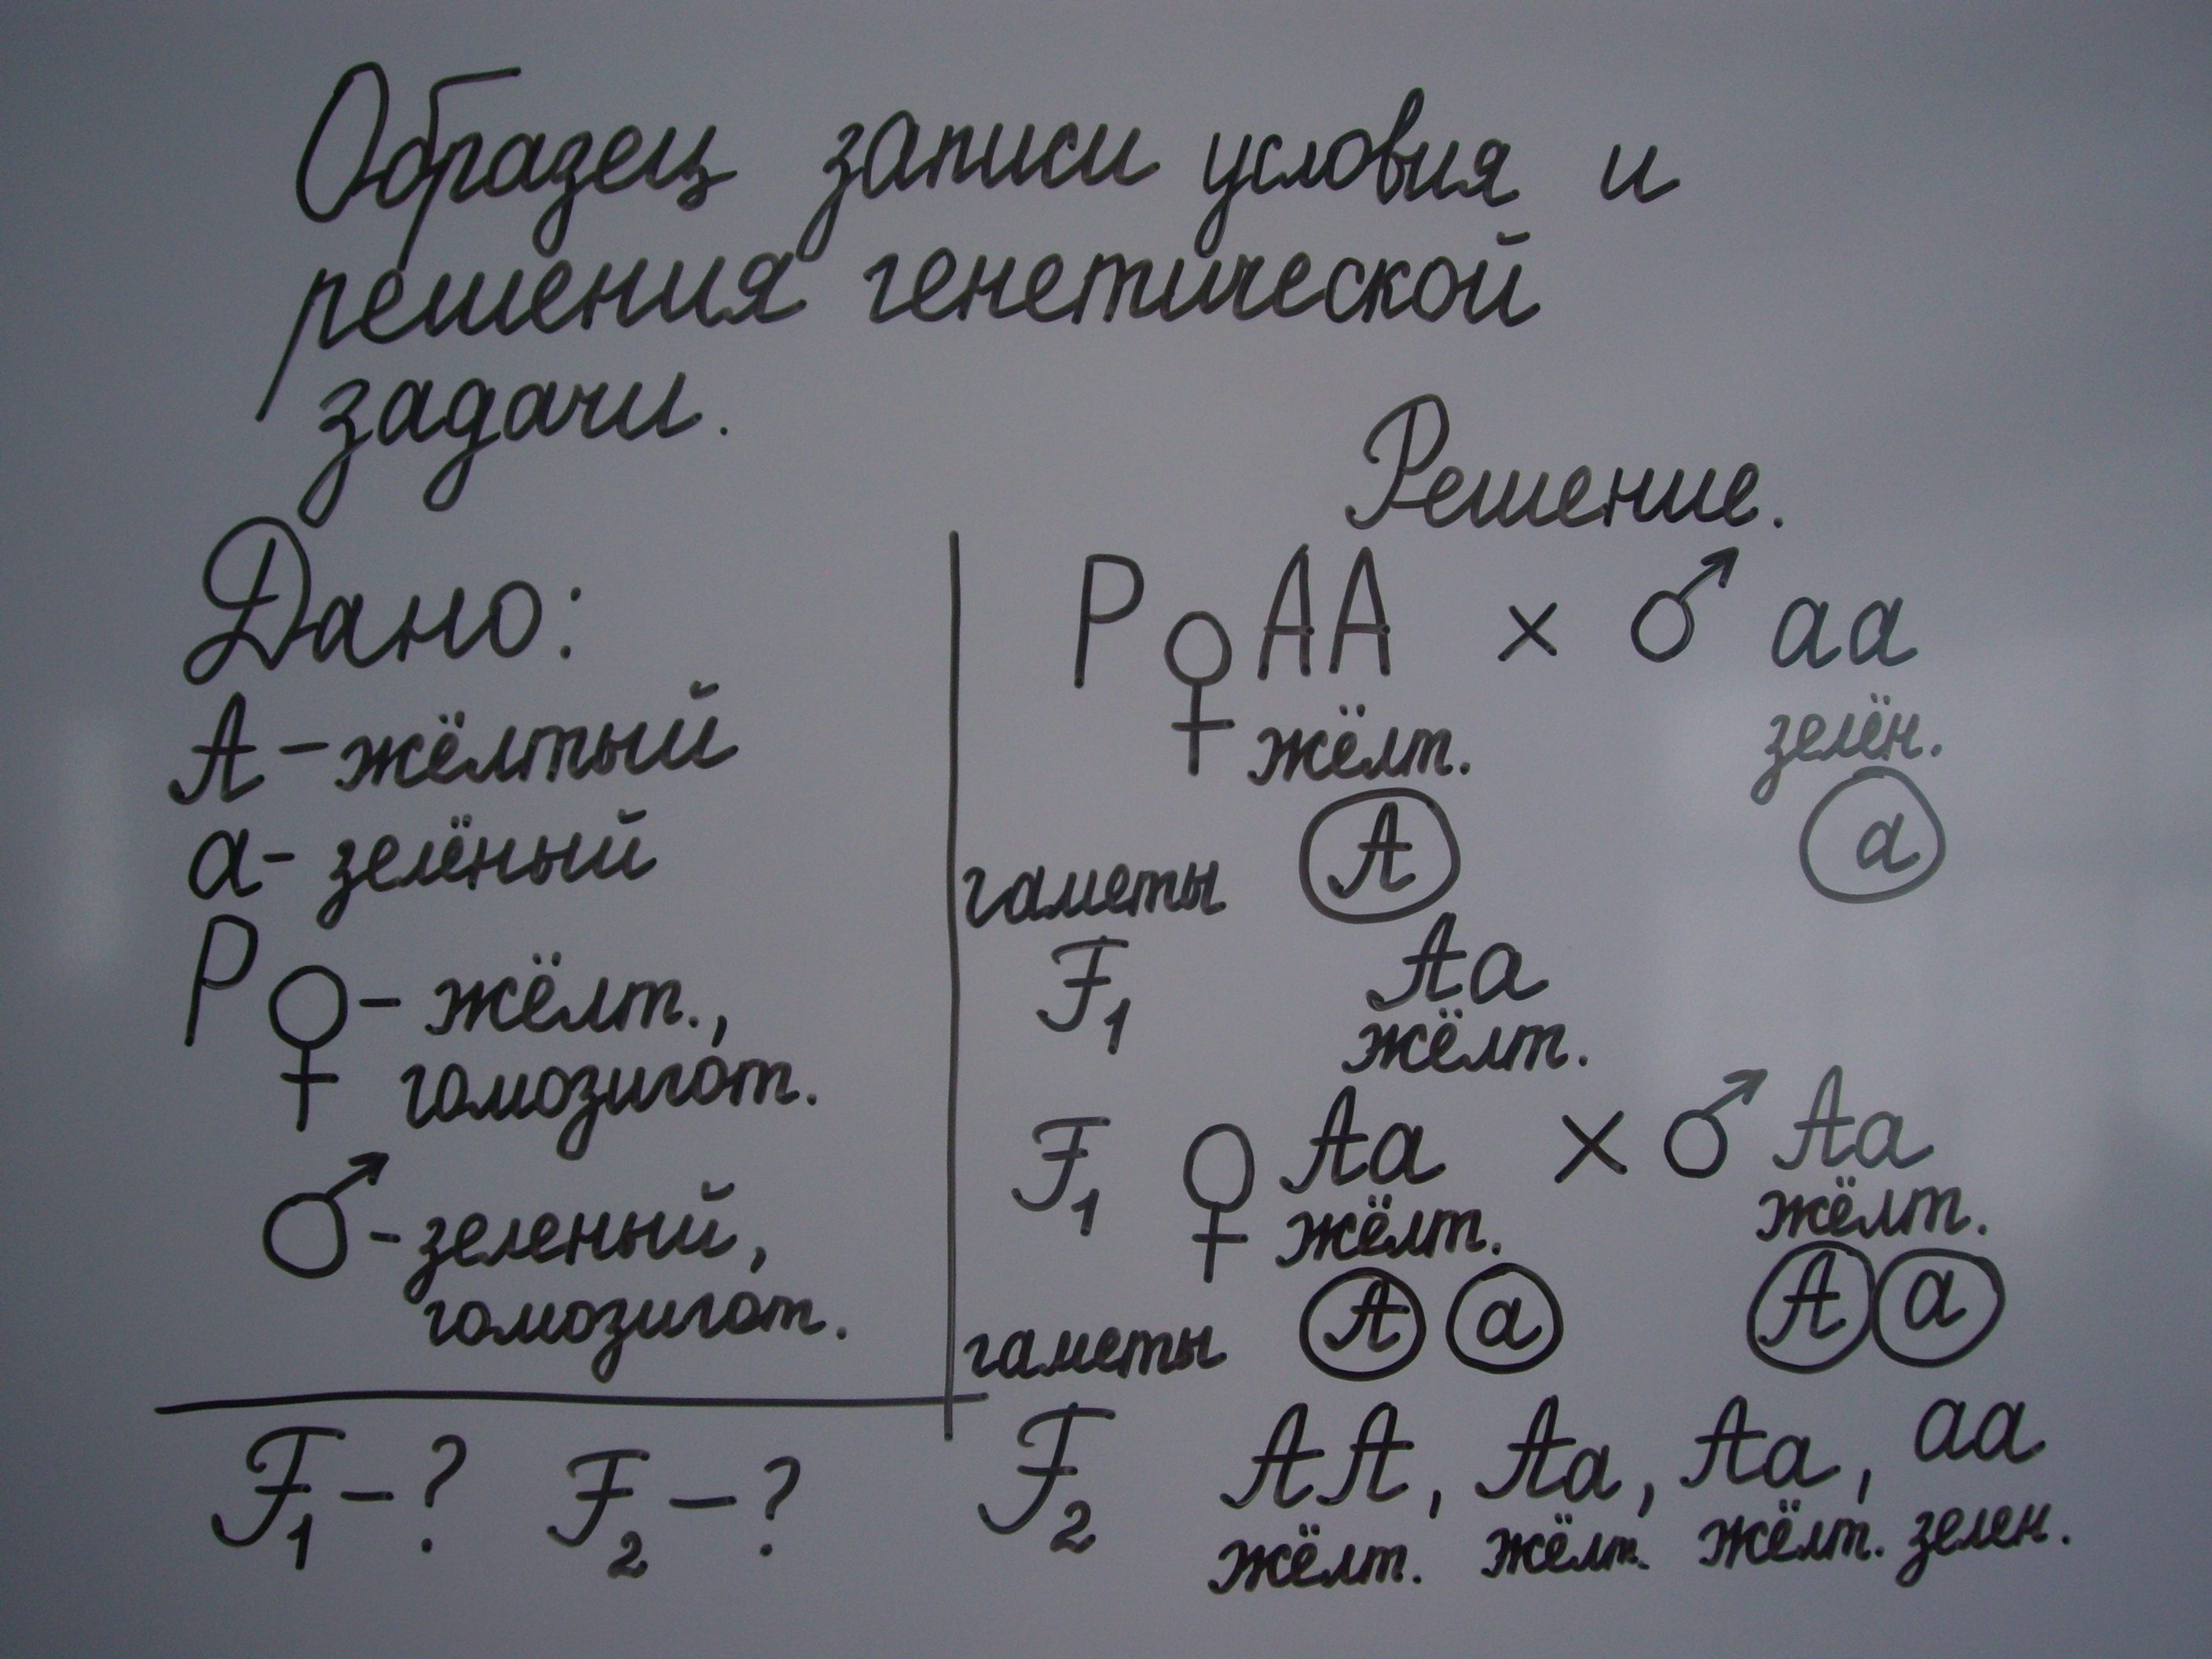 Образец записи условия и
решения генетической
задачи.
Дано:
А – жёлтый
а - зелёный
Р ♀ – жёлт.,
гомозигот.
♂ - зеленый,
гомозигот.
F1 – ? F2 – ?
Решение.
Р ♀ АА × ♂ аа
жёлт. зелён.
гаметы А а
F1 Аа
жёлт.
F1 ♀ Аа × ♂ Аа
жёлт. жёлт.
гаметы А а А а
F2 АА, Аа, Аа, аа
жёлт. жёлт. жёлт. зелен.